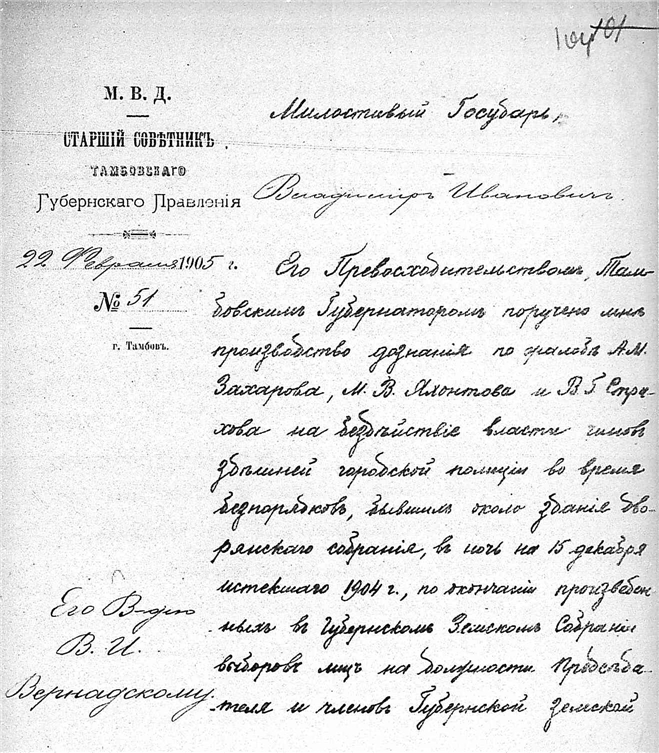 101
М. В. Д.
СТАРШІЙ СОВѢТНИКЪ
ТАМБОВСКАГО
Губернскаго Правленія
22 Февраля 1905 г.
№ 51
г. Тамбовъ.
Милостивый Государь,
Владиміръ Ивановичъ.
Его Превосходительствомъ, Там-
бовскимъ Губернаторомъ поручено мнѣ
производство дознанія по жалобѣ А. М.
Захарова, М. В. Яхонтова и В. Г. Стра-
хова на бездѣйствіе власти чиновъ
здѣшней городской полиціи во время
безпорядковъ, бывшихъ около зданія дво-
рянскаго собранія, въ ночь на 15 декабря
истекшаго 1904 г., по окончаніи произведен-
ныхъ въ Губернскомъ Земскомъ Собраніи
выборовъ лицъ на должности Предсѣда-
теля и членовъ Губернской земской
Его В-дію
В. И.
Вернадскому.